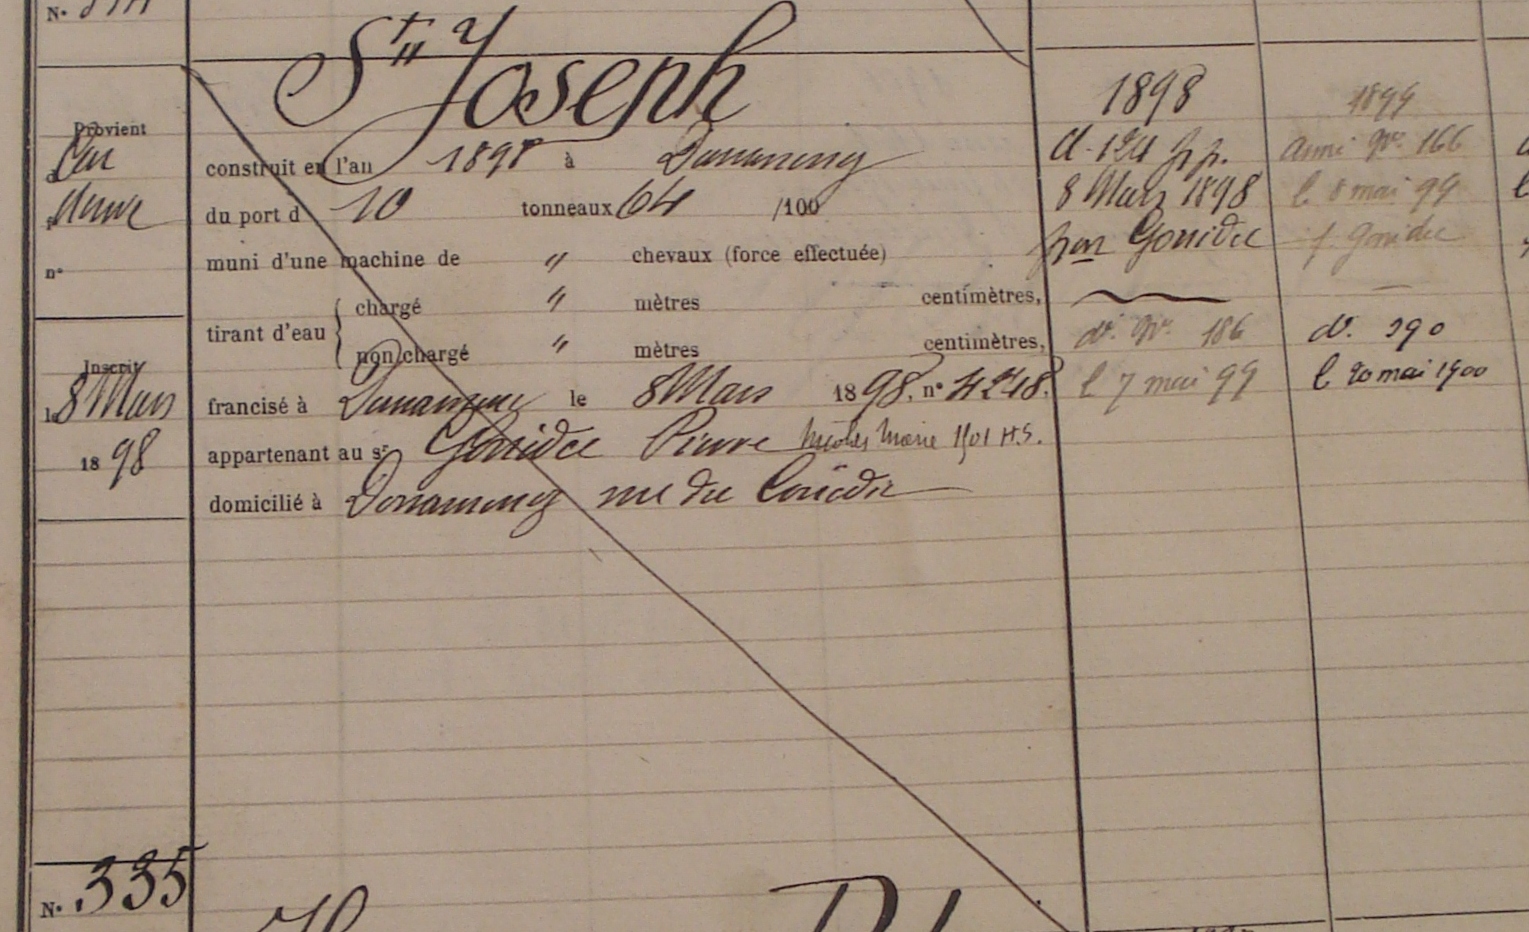 N.
St Joseph
Provient
Car
neuve
n°
Inscrit
le 8 Mars
1898
construit en l'an 1898 à Douarnenez
du port d 10 tonneaux 64 /100
muni d'une machine de " chevaux (force effectuée)
tirant d'eau { chargé " mètres centimètres,
non chargé " mètres centimètres,
francisé à Douarnenez le 8 Mars 1898. n° 4248.
appartenant au sr Gouidec Pierre Nicolas Marie 1901 H.S.
domicilié à Douarnenez rue du Couëdic
1898
d. 124 pp.
8 Mars 1898
par Gouidec
do. qce. 186
l 7 mai 99
1899
armé qce. 166
l 8 mai 99
p. Gouidec
do. 290
l 20 mai 1900
N. 335